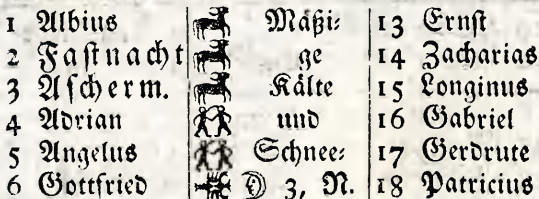 1 Albius Mäßi: 13 Ernſt
2 Faſtnacht ge 14 Zacharias
3 Aſcherm. Kälte 15 Longinus
4 Adrian und 16 Gabriel
5 Angelus Schnee: 17 Gerdrute
6 Gottfried 3, N. 18 Patricius